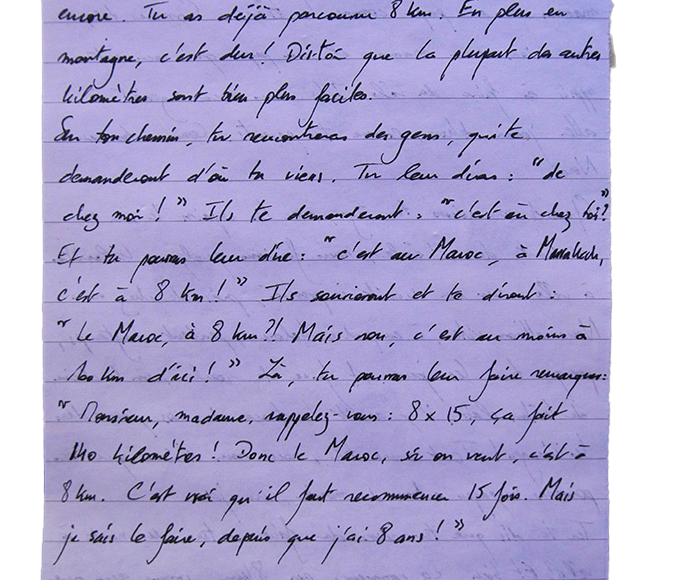 encore. Tu as déjà parcouru 8 km. En plus en
montagne, c'est dur ! Dis-toi que la plupart des autres
kilomètres sont bien plus faciles.
Sur ton chemin, tu rencontreras des gens, qui te
demanderont d'où tu viens. Tu leur diras : "de
chez moi ! " Ils te demanderont : "c'est où chez toi?"
Et tu pourras leur dire : "c'est au Maroc, à Marrakech,
c'est à 8 km ! " Ils souriront et te diront :
" Le Maroc, à 8 km ?! Mais non, c'est au moins à
100 km d'ici ! " Là, tu pourras leur faire remarquer :
" Monsieur, madame, rappelez-vous : 8 x 15, ça fait
140 kilomètres ! Donc le Maroc, si on veut, c'est à
8 km. C'est vrai qu'il faut recommencer 15 fois. Mais
je sais le faire, depuis que j'ai 8 ans ! "